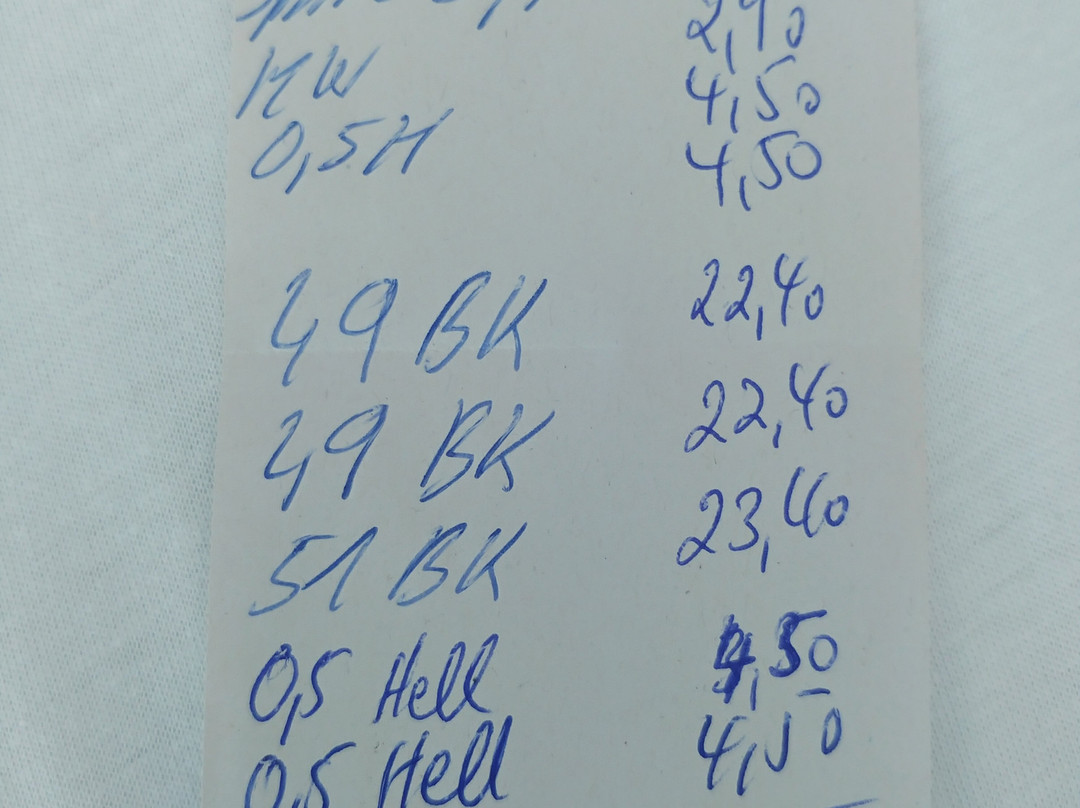 2,90
KW 4,50
0,5 H 4,50
49 BK 22,40
49 BK 22,40
51 BK 23,40
0,5 Hell 4,50
0,5 Hell 4,50